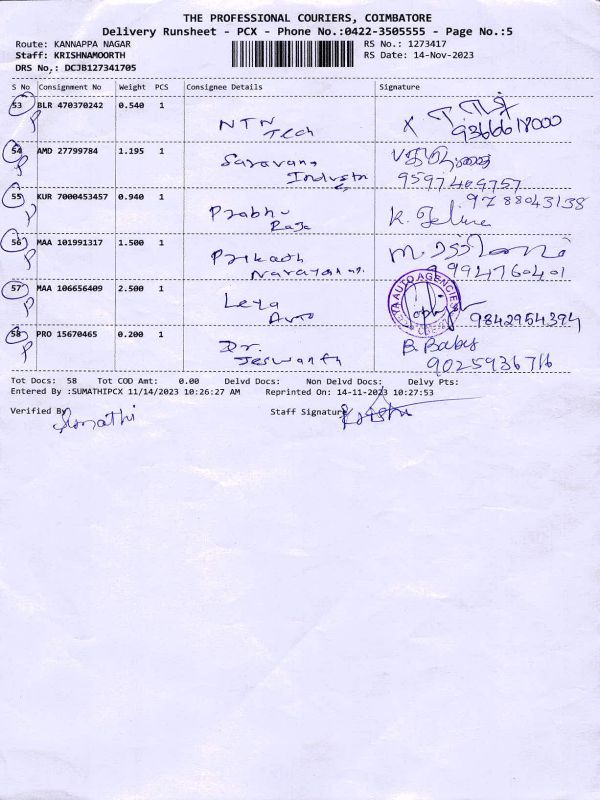 THE PROFESSIONAL COURIERS, COIMBATORE
Delivery Runsheet - PCX - Phone No.:0422-3505555 - Page No.:5
Route: KANNAPPA NAGAR
RS No.: 1273417
Staff: KRISHNAMOORTH
RS Date: 14-Nov-2023
DRS No.: DCJB127341705
S No Consignment No Weight PCS Consignee Details Signature
53 BLR 470370242 0.540 1 NTN Tech
9366618000
54 AMD 27799784 1.195 1 Saravana Industr
9597409757
55 KUR 7000453457 0.940 1 Prabhu Raja
9788043138
56 MAA 101991317 1.500 1 Prikash
9994760401
57 MAA 106656409 2.500 1 Leya Auto
LEYA AUTO AGENCIES
9842954394
58 PRO 15670465 0.200 1 Dr. Jeswanth B. Baby
9025936716
Tot Docs: 58 Tot COD Amt: 0.00 Delvd Docs: Non Delvd Docs: Delvy Pts:
Entered By :SUMATHIPCX 11/14/2023 10:26:27 AM Reprinted On: 14-11-2023 10:27:53
Verified By Sumathi Staff Signature